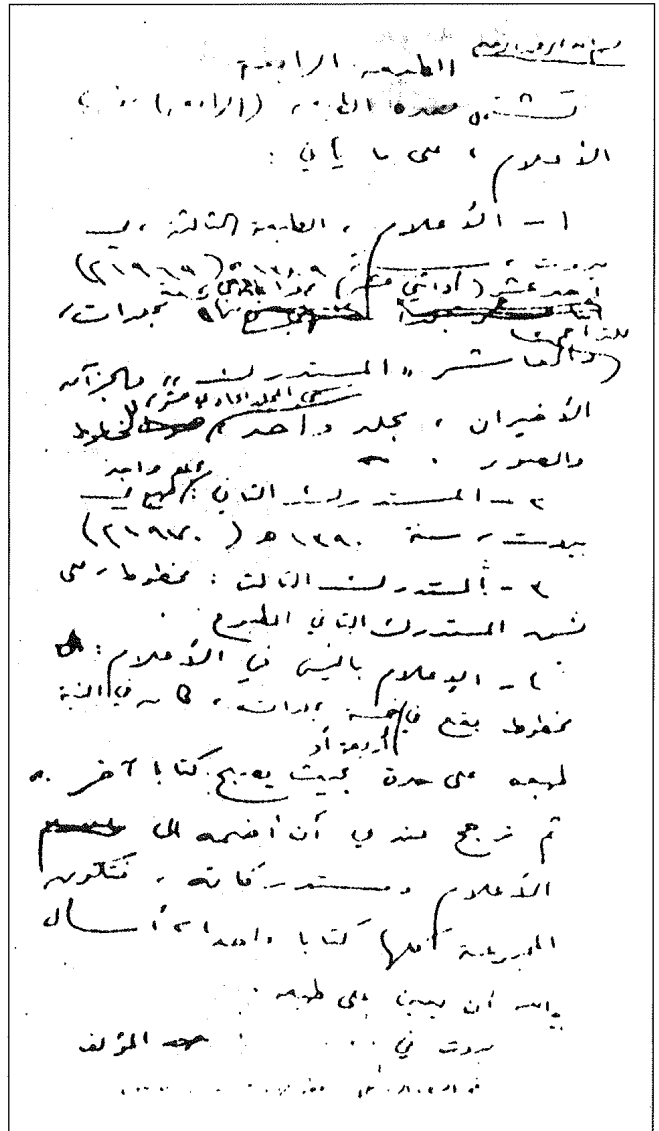 بسم الله الرحمن الرحيم
الطبعة الرابعة
تشتمل هذه الطبعة (الرابعة) من
الأعلام ، على ما يأتي :
١ - الأعلام ، الطبعة الثالثة ، في
بيروت ، ١٣٨٩ هـ (١٩٦٩ م)
أحد عشر (أو اثني عشر)
مجلدات ،
والعاشر «المستدرك»
الأخيران ، مجلد واحد للخطوط
والصور .
٢ - المستدرك الثاني : طبع في
مجلد واحد
بيروت ، سنة ١٣٩٠ هـ (١٩٧٠ م)
٣ - المستدرك الثالث : مخطوط ، على
نسق المستدرك الثاني المطبوع .
٤ - الإعلام بما ليس في الأعلام :
مخطوط يقع في خمسة مجلدات ، كان في النية
أربعة أو
طبعه على حدة بحيث يصبح كتابا آخر .
ثم ترجح عندي أن أضمه إلى
الأعلام ومستدركاته ، فتكون
المجموعة كلها كتابا واحدا ، أسأل
الله أن يعين على طبعه .
بيروت في . . . المؤلف